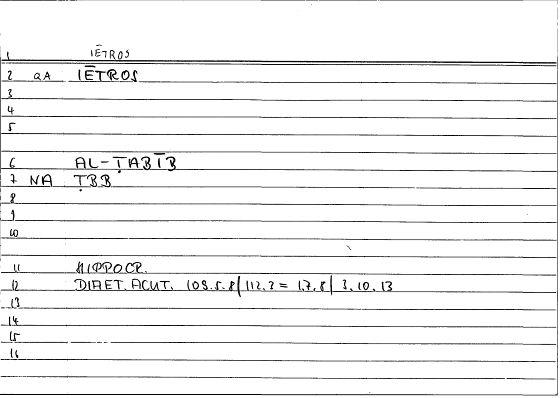 1 IĒTROS
2 QA IĒTROS
3
4
5
6 AL-ṬABĪB
7 NA ṬBB
8
9
10
11 HIPPOCR.
12 DIAET. ACUT. 109.5.8 | 112.2 = 1.7.8 | 3.10.13
13
14
15
16